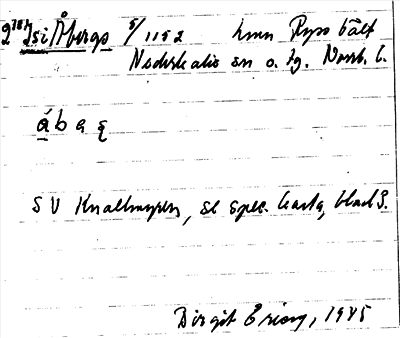 Åbergs 5/1152 hmn Ryssbält
Nederkalix sn o. tg. Norrb. l.
á b e ȩ
S V Knallmyren, se spec. karta, blad 3.
Birgit Ericss, 1985